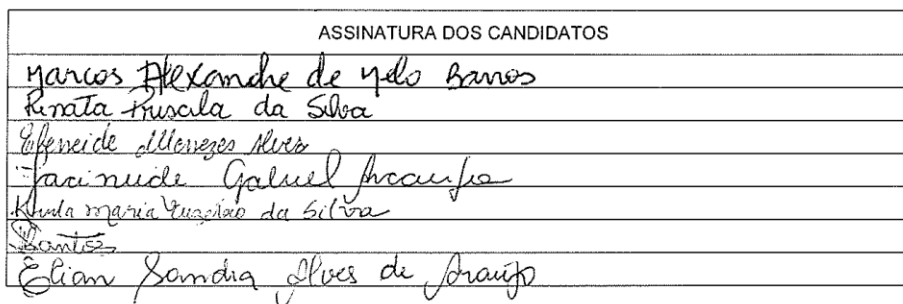 ASSINATURA DOS CANDIDATOS
Marcos Alexandre de Melo Barros
Renata Priscila da Silva
Menezes Alves
Gabriel Araujo
Maria da Silva
Santos
Elian Sandra Alves de Araujo